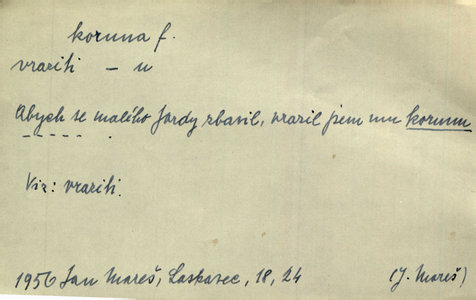 koruna f.
vraziti – u
Abych se malého Jardy zbavil, vrazil jsem mu korunu
Viz: vraziti.
1956 Jan Mareš, Laskavec, 18, 24 (J. Mareš)